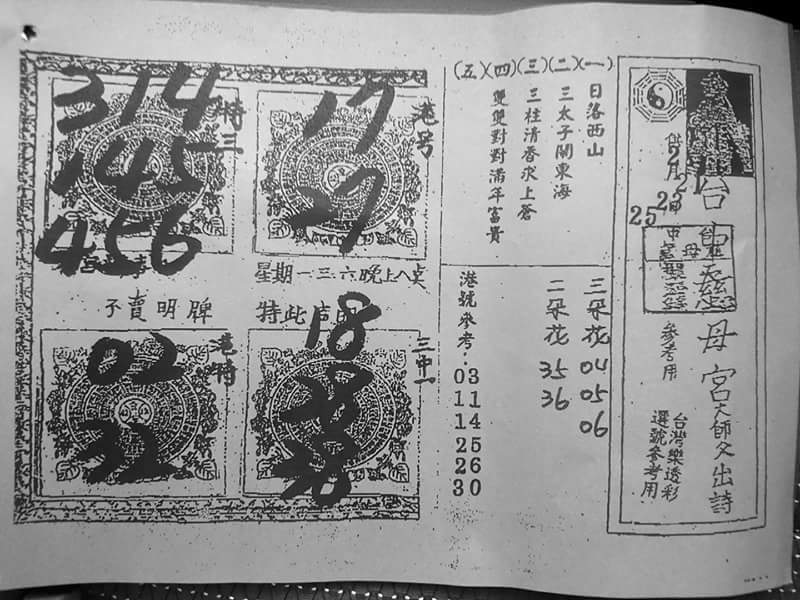 台靈慈母宮大師父出詩
供
2月21
23
25
參考用
台灣樂透彩
選號參考用
(一)
日落西山
(二)
三太子鬧東海
(三)
三柱清香求上蒼
(四)
雙雙對對滿年富貴
(五)
三朵花 04 05 06
二朵花 35 36
港號參考:
03
11
14
25
26
30
港号
17
27
特三
314
145
456
星期一.三.六.晚上八点
特此声明
子賣明牌
三中一
18
28
38
港特
02
32